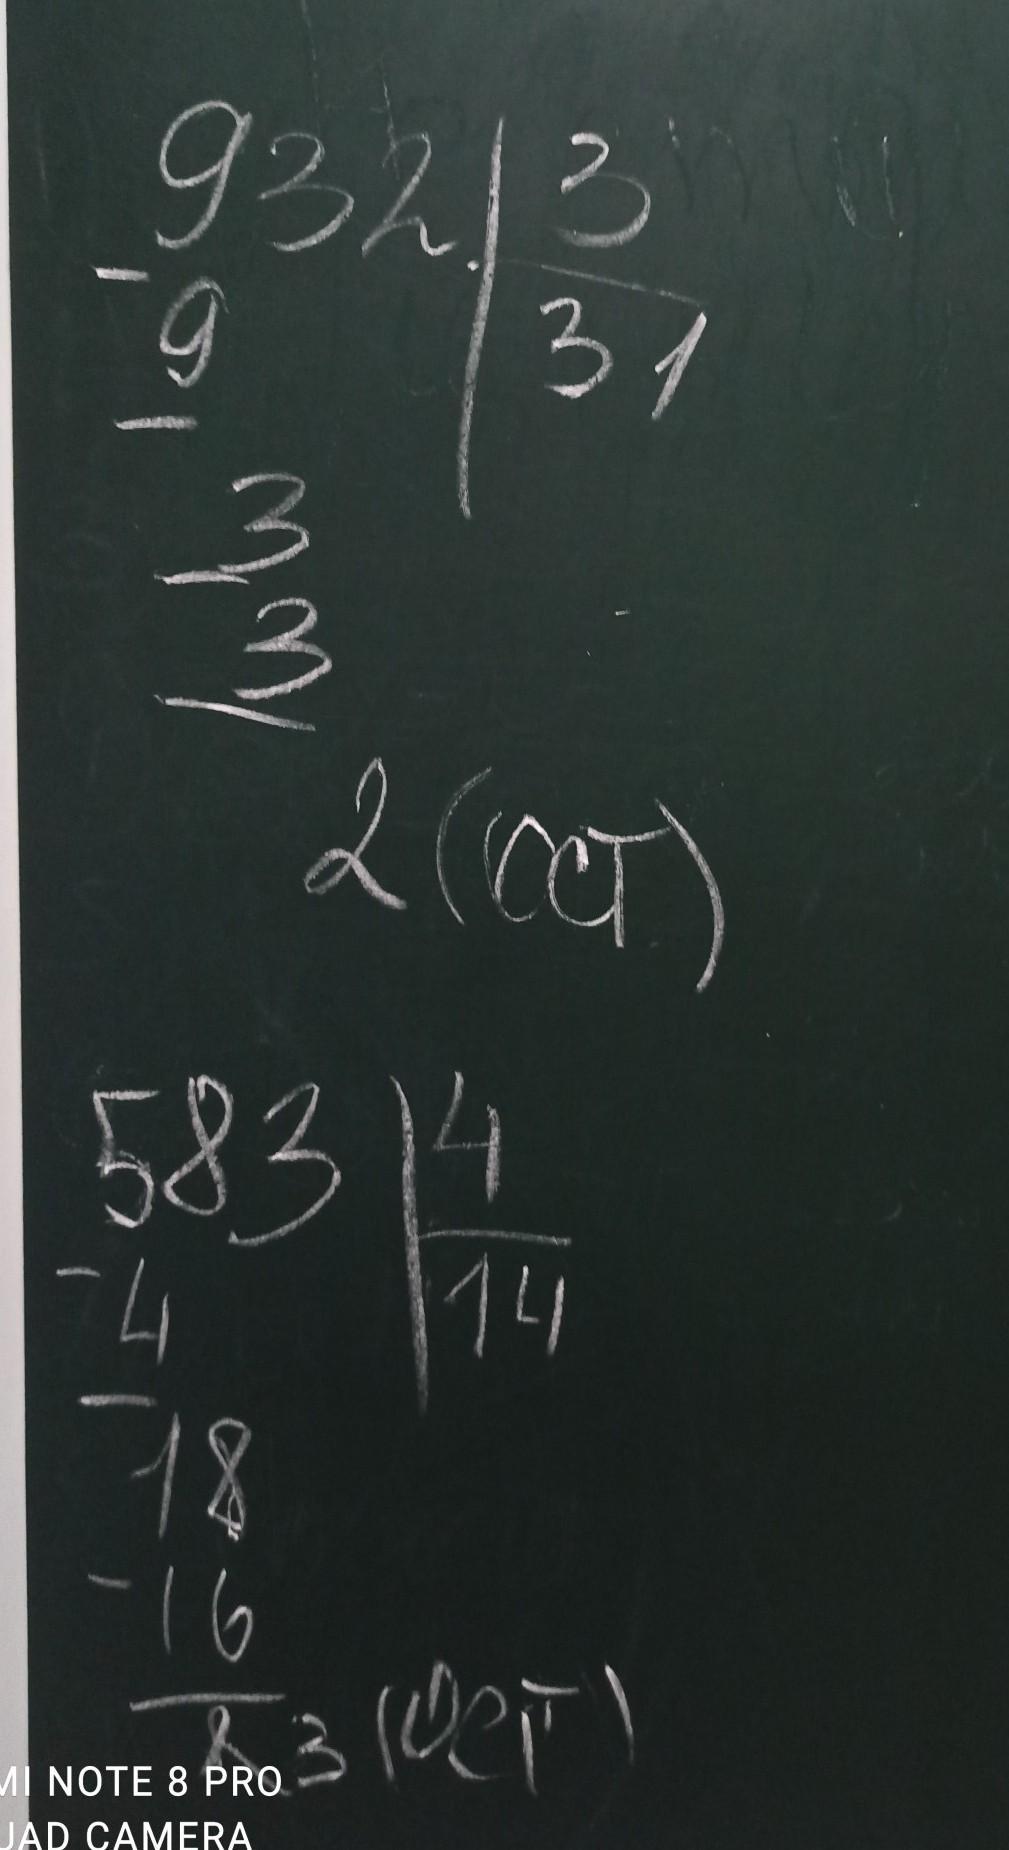 932 3
- 9 31
- 3
- 3
2 (ОСТ)
583 4
- 4 14
- 18
- 16
23 (ОСТ)
MI NOTE 8 PRO
UAD CAMERA